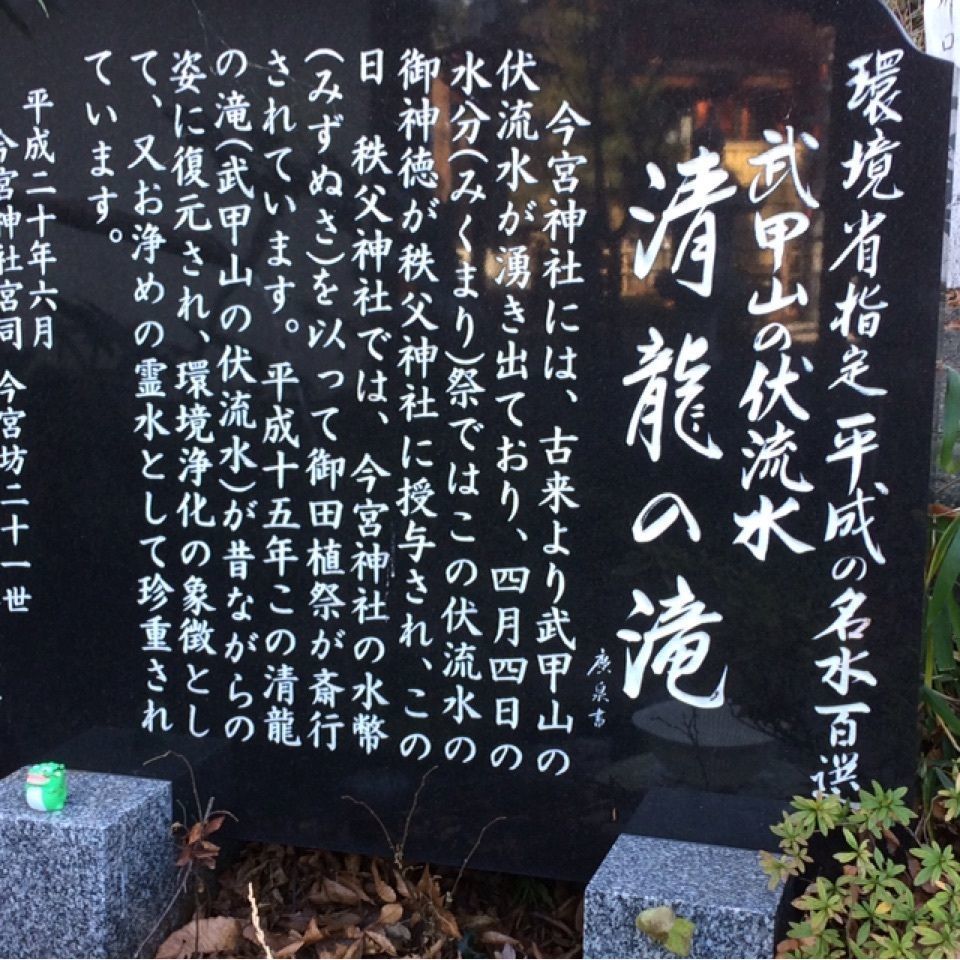 環境省指定平成の名水百選
武甲山の伏流水
清龍の滝
廣泉書
今宮神社には、古来より武甲山の
伏流水が湧き出ており、四月四日の
水分(みくまり)祭ではこの伏流水の
御神徳が秩父神社に授与され、この
日 秩父神社では、今宮神社の水幣
(みずぬさ)を以って御田植祭が斎行
されています。平成十五年この清龍
の滝(武甲山の伏流水)が昔ながらの
姿に復元され、環境浄化の象徴とし
て、又お浄めの霊水として珍重され
ています。
平成二十年六月
今宮神社宮司 今宮坊二十一世